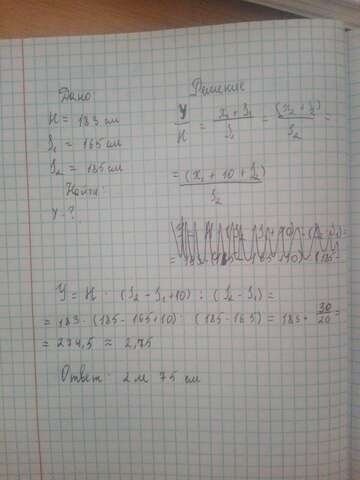 Дано:
H = 183 см
S₁ = 165 см
S₂ = 185 см
Найти:
Y - ?
Решение
Y/H = (x₁ + S₁)/S₁ = (x₂ + S₂)/S₂ =
= (x₁ + 10 + S₂)/S₂
Y = H · (S₂ - S₁ + 10) : (S₂ - S₁) =
= 183 · (185 - 165 + 10) : (185 - 165) = 183 · 30/20 =
= 274,5 ≈ 2,75
Ответ: 2 м 75 см